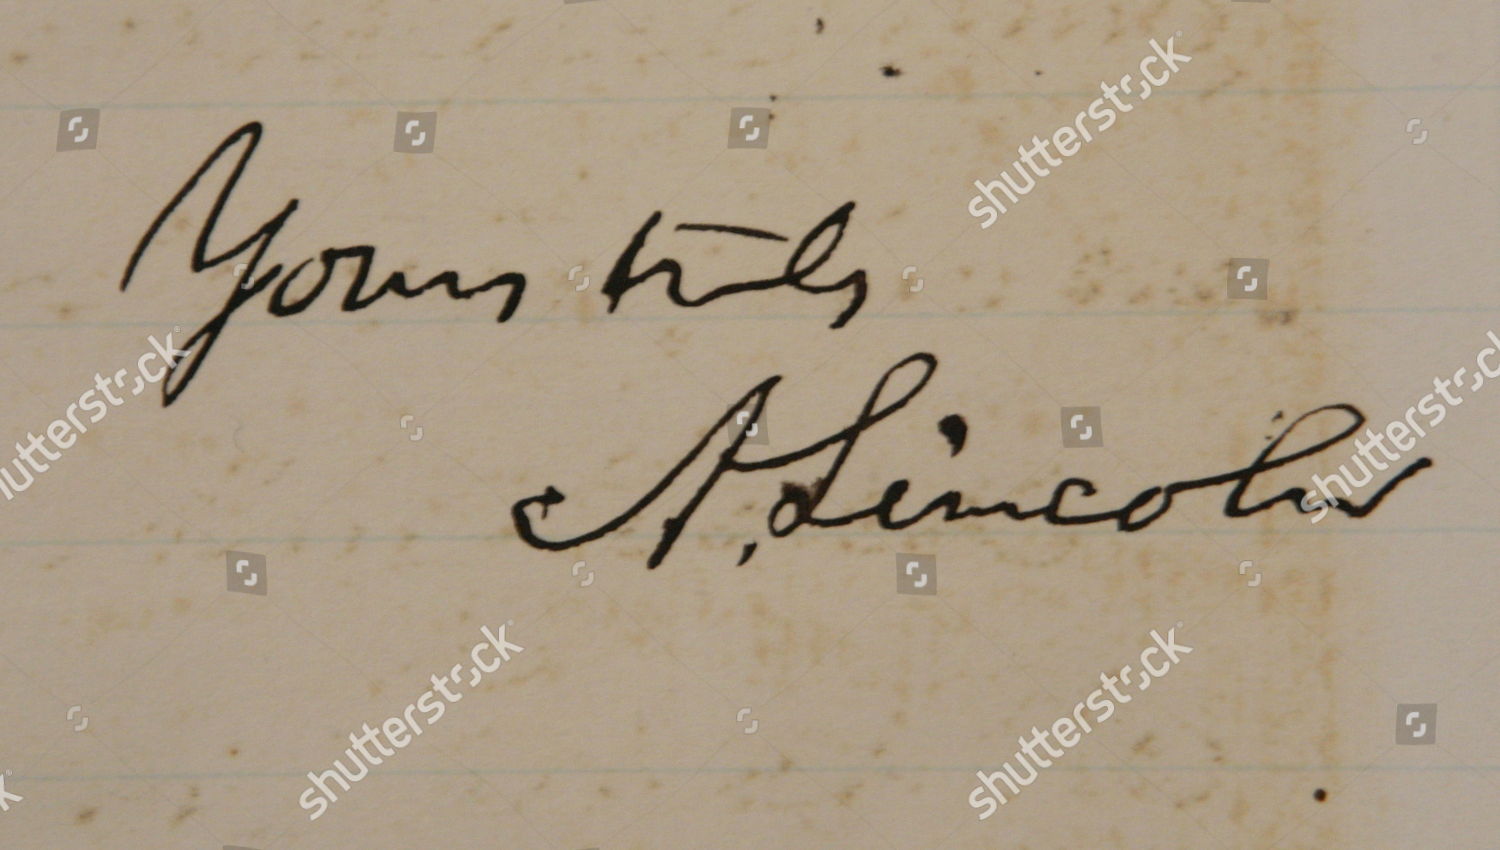 Yours truly
A. Lincoln
shutterstock
shutterstock
shutterstock
shutterstock
shutterstock